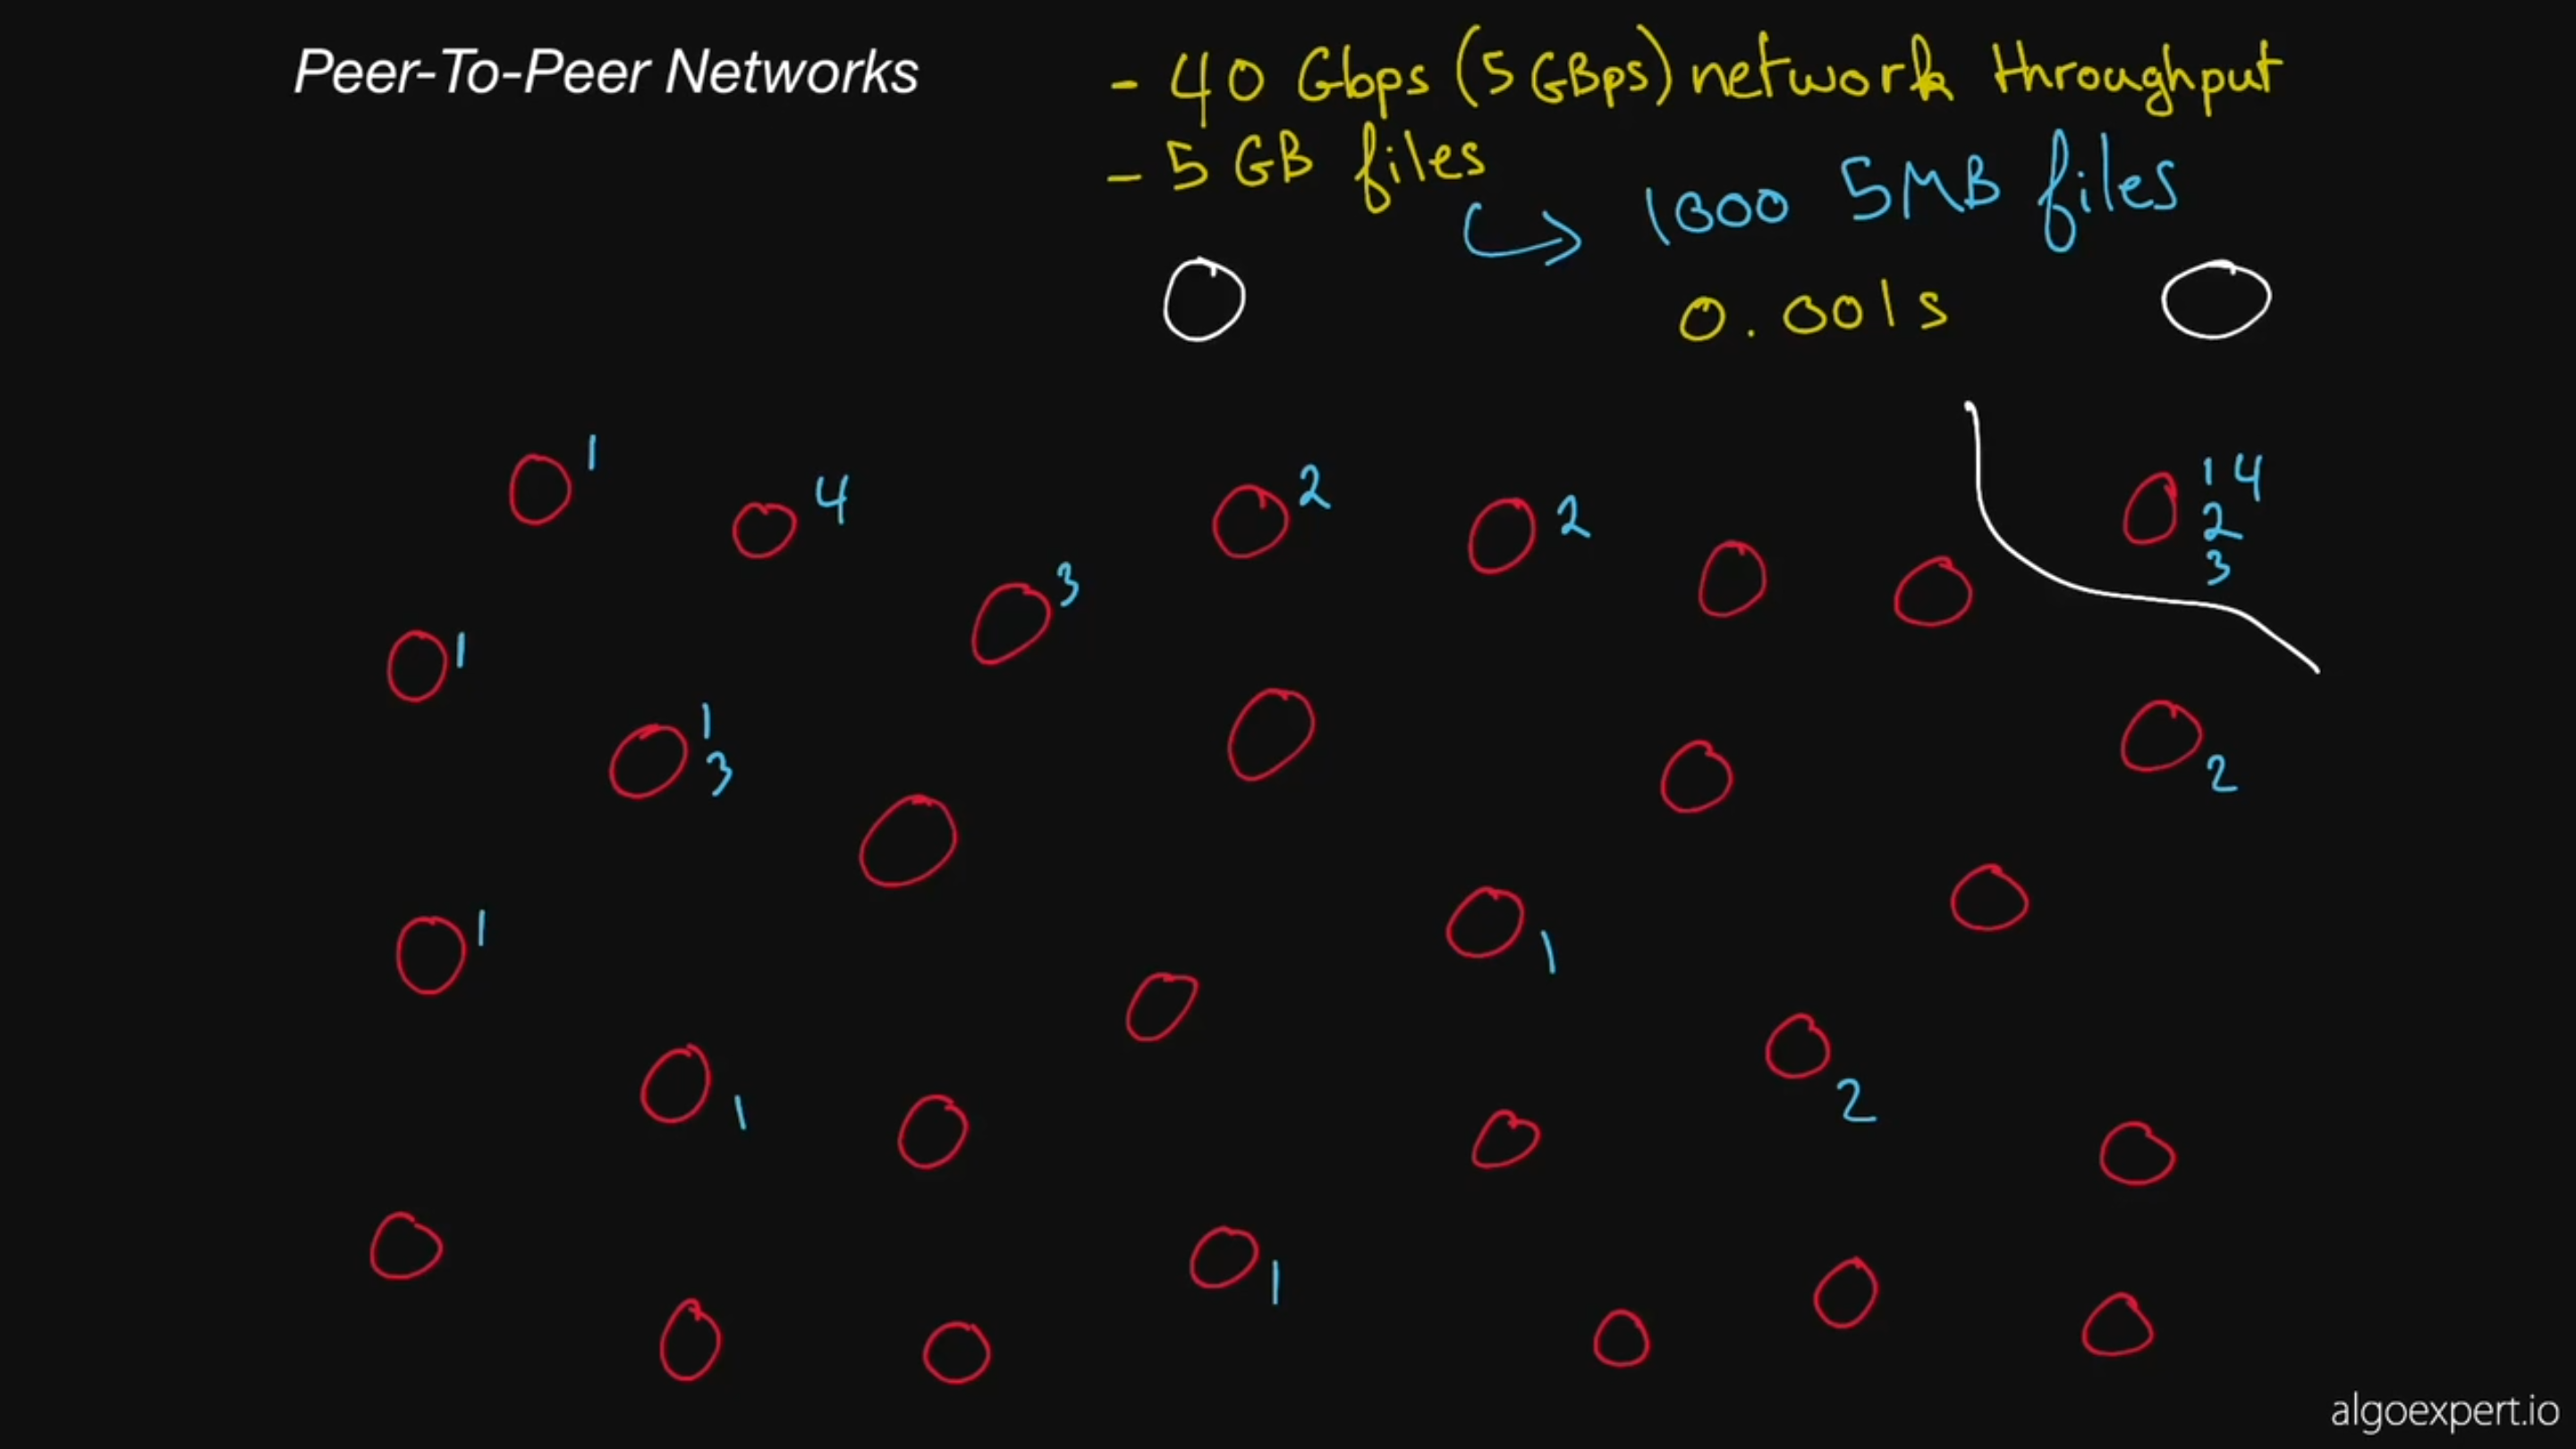 Peer-To-Peer Networks
- 40 Gbps (5 GBps) network throughput
- 5 GB files
↪ 1000 5MB files
0.001s
1
4
2
2
1 4
2
3
3
1
1
3
2
1
1
1
2
1
algoexpert.io